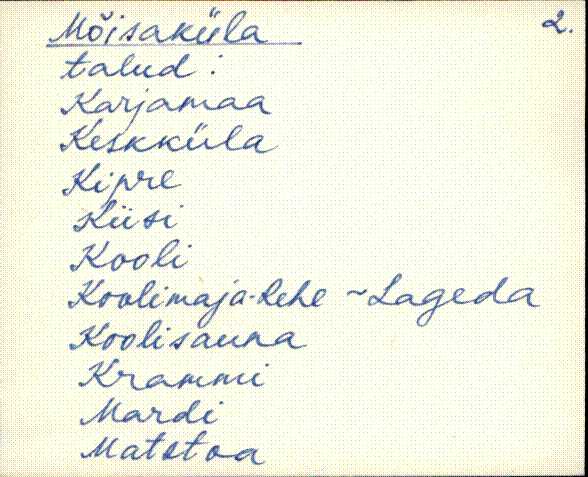 Mõisaküla 2.
talud:
Karjamaa
Keskküla
Kipre
Kiisi
Kooli
Koolimaja-Rehe ~ Lageda
Koolisauna
Krammi
Mardi
Matstoa